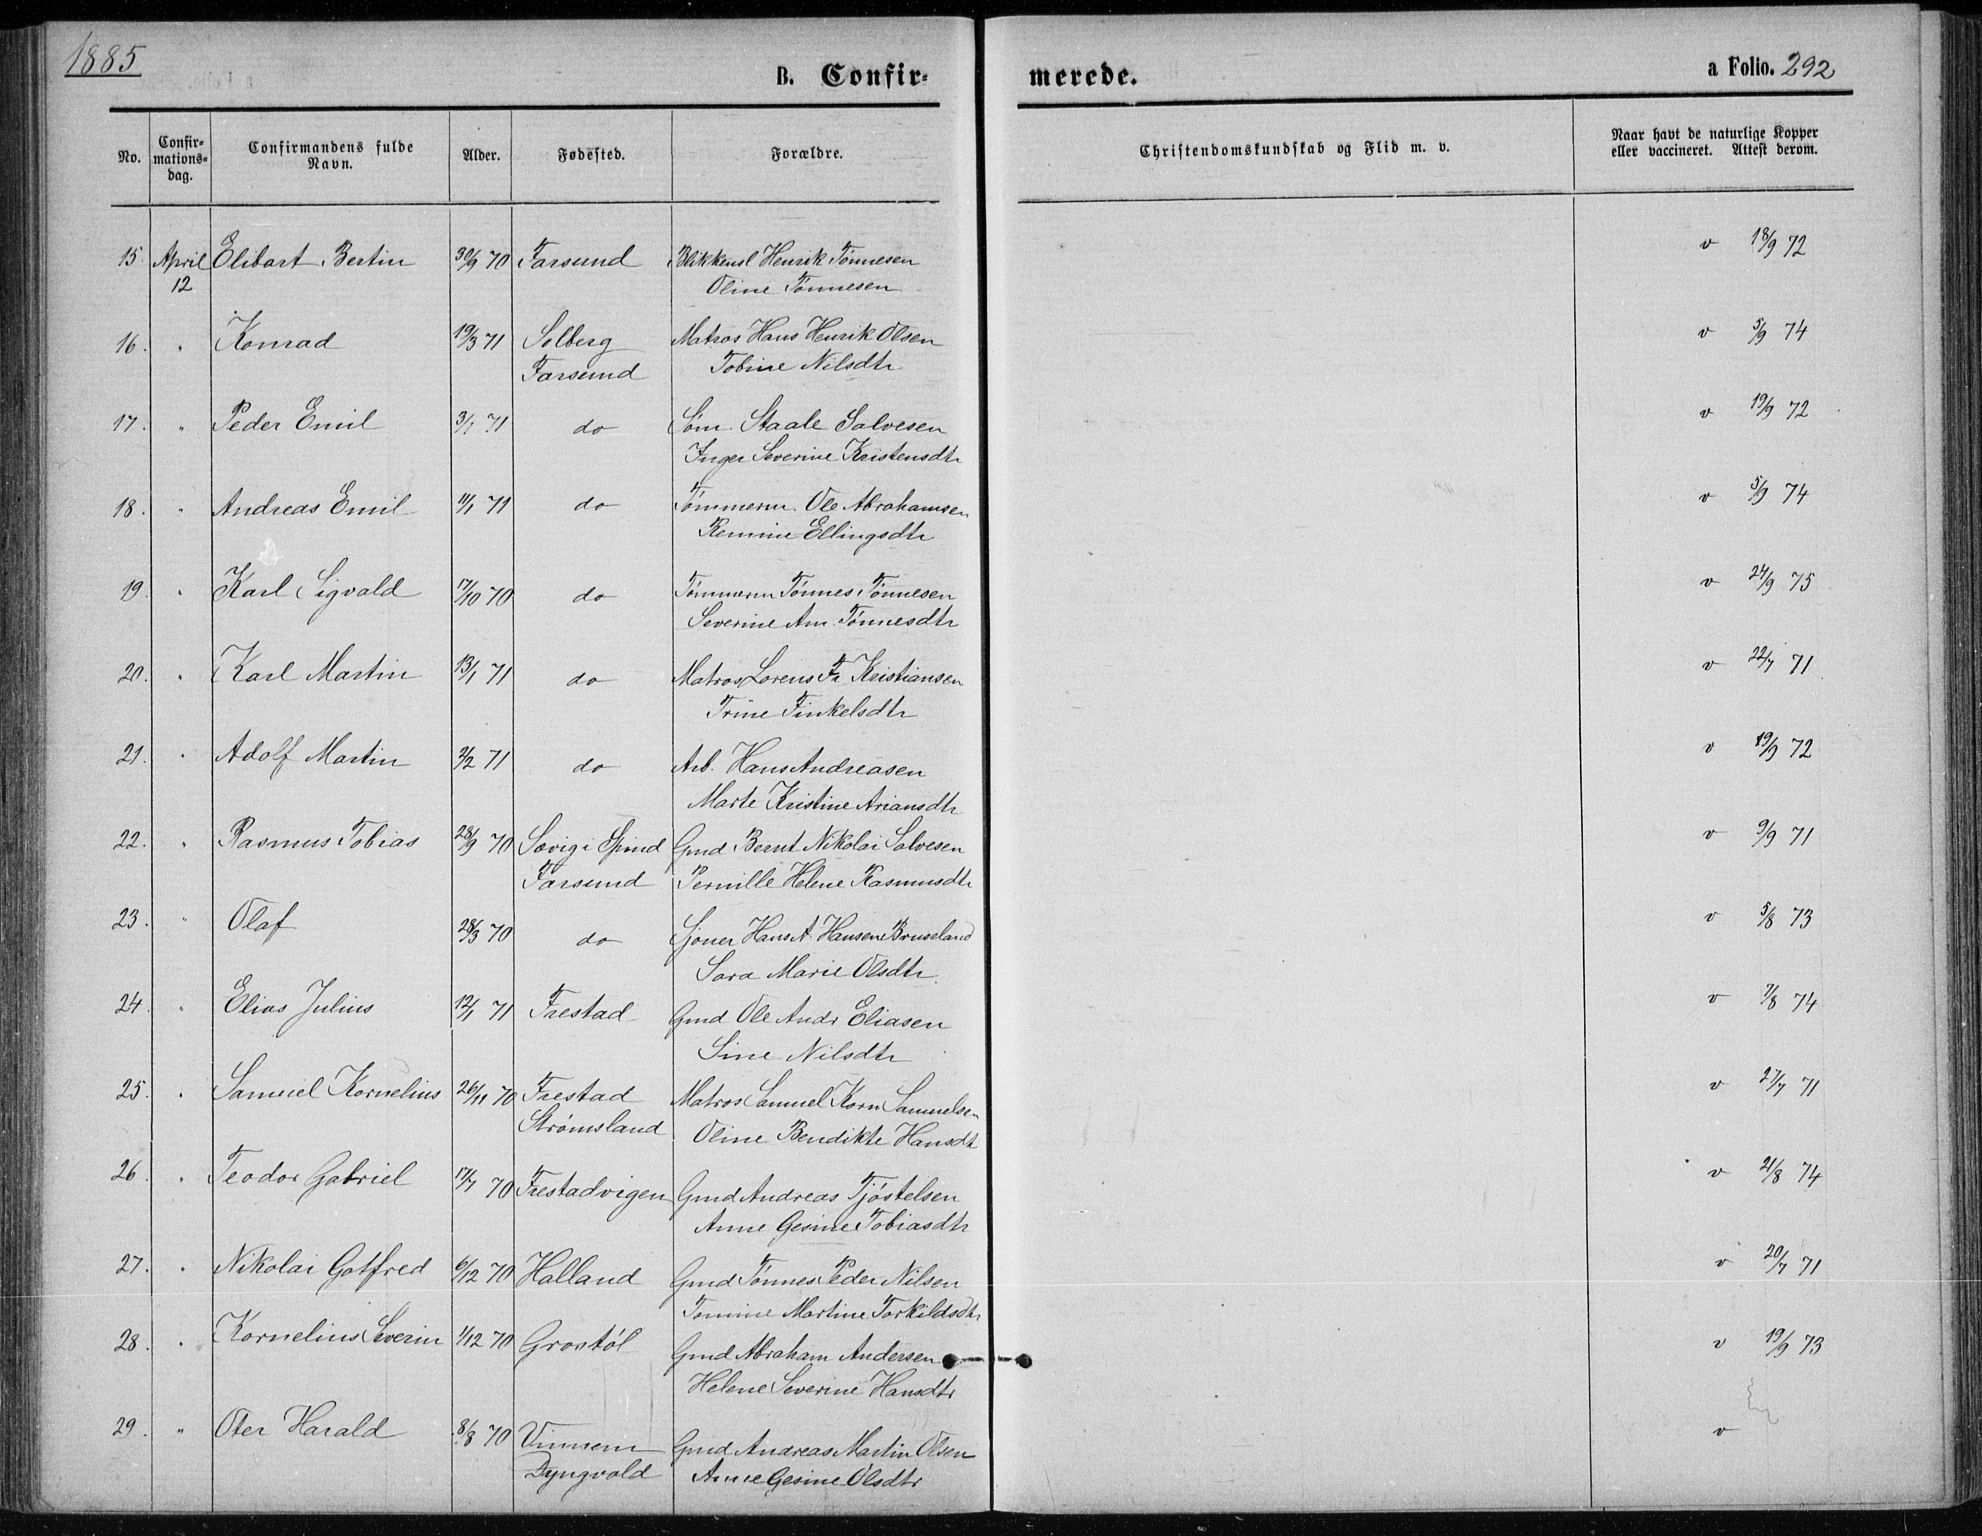 1885
B. Confir-
merede.
a Folio. 292
No.
Confir-
mations-
dag.
Confirmandens fulde
Navn.
Alder.
Fødested.
Forældre.
Christendomskundskab og Flid m. v.
Naar havt de naturlige Kopper
eller vaccineret. Attest derom.
15. April Elibart Bertin 30/9 70 Farsund Blikkensl Henrik Tønnesen v 18/9 72
12 Oline Tønnesen
16. " Konrad 19/3 71 Solberg Matros Hans Henrik Olsen v 5/9 74
Farsund Tobine Nilsdtr
17. " Peder Emil 3/1 71 do Søm. Staale Salvesen v 19/9 72
Inger Severine Kristensdtr
18. " Andreas Emil 11/1 71 do Tømmerm. Ole Abrahamsen v 5/9 74
Remine Ellingsdtr
19. " Karl Sigvald 17/10 70 do Tømmerm Tønnes Tønnesen v 24/9 75
Severine Am. Tønnesdtr
20. " Karl Martin 13/1 71 do Matros Lorens Fr Kristiansen v 22/7 71
Trine Finkelsdtr
21. " Adolf Martin 2/2 71 do Arb. Hans Andreasen v 19/9 72
Marte Kristine Ariansdtr
22. " Rasmus Tobias 28/9 70 Sævig i Spind Gmd Bernt Nikolai Salvesen v 9/9 71
Farsund Pernille Helene Rasmusdtr
23. " Olaf 28/3 70 do Sjøner Hans A. Hansen Bruseland v 5/8 73
Sara Marie Olsdtr.
24. " Elias Julius 12/1 71 Frestad Gmd Ole Andr Eliasen v 7/8 74
Sine Nilsdtr
25. " Samuel Kornelius 26/11 70 Frestad Matros Samuel Korn Samuelsen v 27/7 71
Strømsland Oline Bendikte Hansdtr
26. " Teodor Gabriel 17/7 70 Frestadvigen Gmd Andreas Tjøstelsen v 21/8 74
Anne Gesine Tobiasdtr
27. " Nikolai Gotfred 6/12 70 Halland Gmd Tønnes Peder Nilsen v 20/7 71
Tomine Martine Torkildsdtr
28. " Kornelius Severin 1/12 70 Grostøl Gmd Abraham Andersen v 19/9 73
Helene Severine Hansdtr
29. " Oter Harald 8/8 70 Vinnem Gmd Andreas Martin Olsen v
Dyngvold Anne Gesine Olsdtr